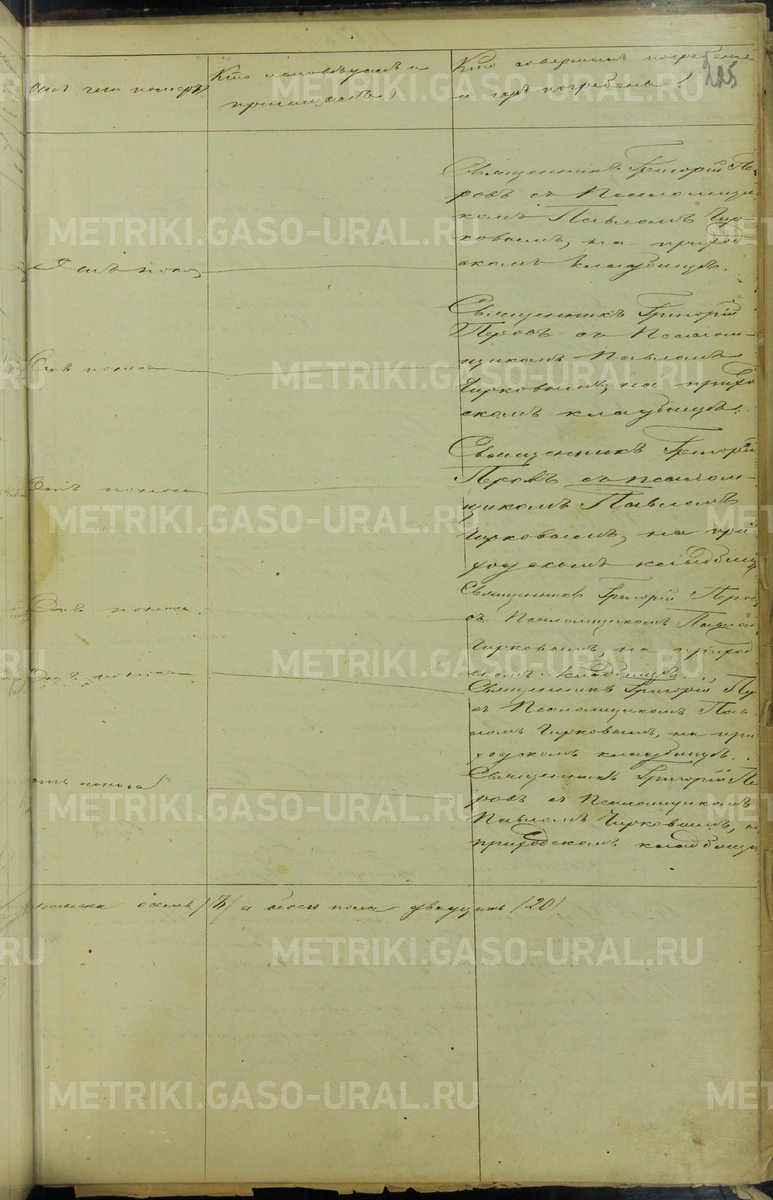 Отъ чего померъ
Кто исповѣдывалъ и
пріобщалъ
Кто совершалъ погребеніе
и гдѣ погребены
225
Священникъ Григорій Пе-
ровъ съ Псаломщи-
комъ Павломъ Чир-
ковымъ, на приход-
скомъ кладбищѣ.
Отъ поноса
Священникъ Григорій
Перовъ съ Псалом-
щикомъ Павломъ
Чирковымъ, на прихо
скомъ кладбищѣ.
Отъ поноса
Священникъ Григорій
Перовъ съ псалом-
щикомъ Павломъ
Чирковымъ, на при-
ходскомъ кладбищѣ
Отъ поноса
Священникъ Григорій Перов
съ Псаломщикомъ Павлом
Чирковымъ, на приход
скомъ кладбищѣ.
Отъ поноса.
Священникъ Григорій Пе
съ Псаломщикомъ Пав-
ломъ Чирковымъ, на при
ходскомъ кладбищѣ.
Отъ поноса
Священникъ Григорій Пе-
ровъ съ Псаломщикомъ
Павломъ Чирковымъ, на
приходскомъ кладбищѣ
отъ поноса
женска осемь /8/ а обоего пола двадцать /20/.
METRIKI.GASO-URAL.RU